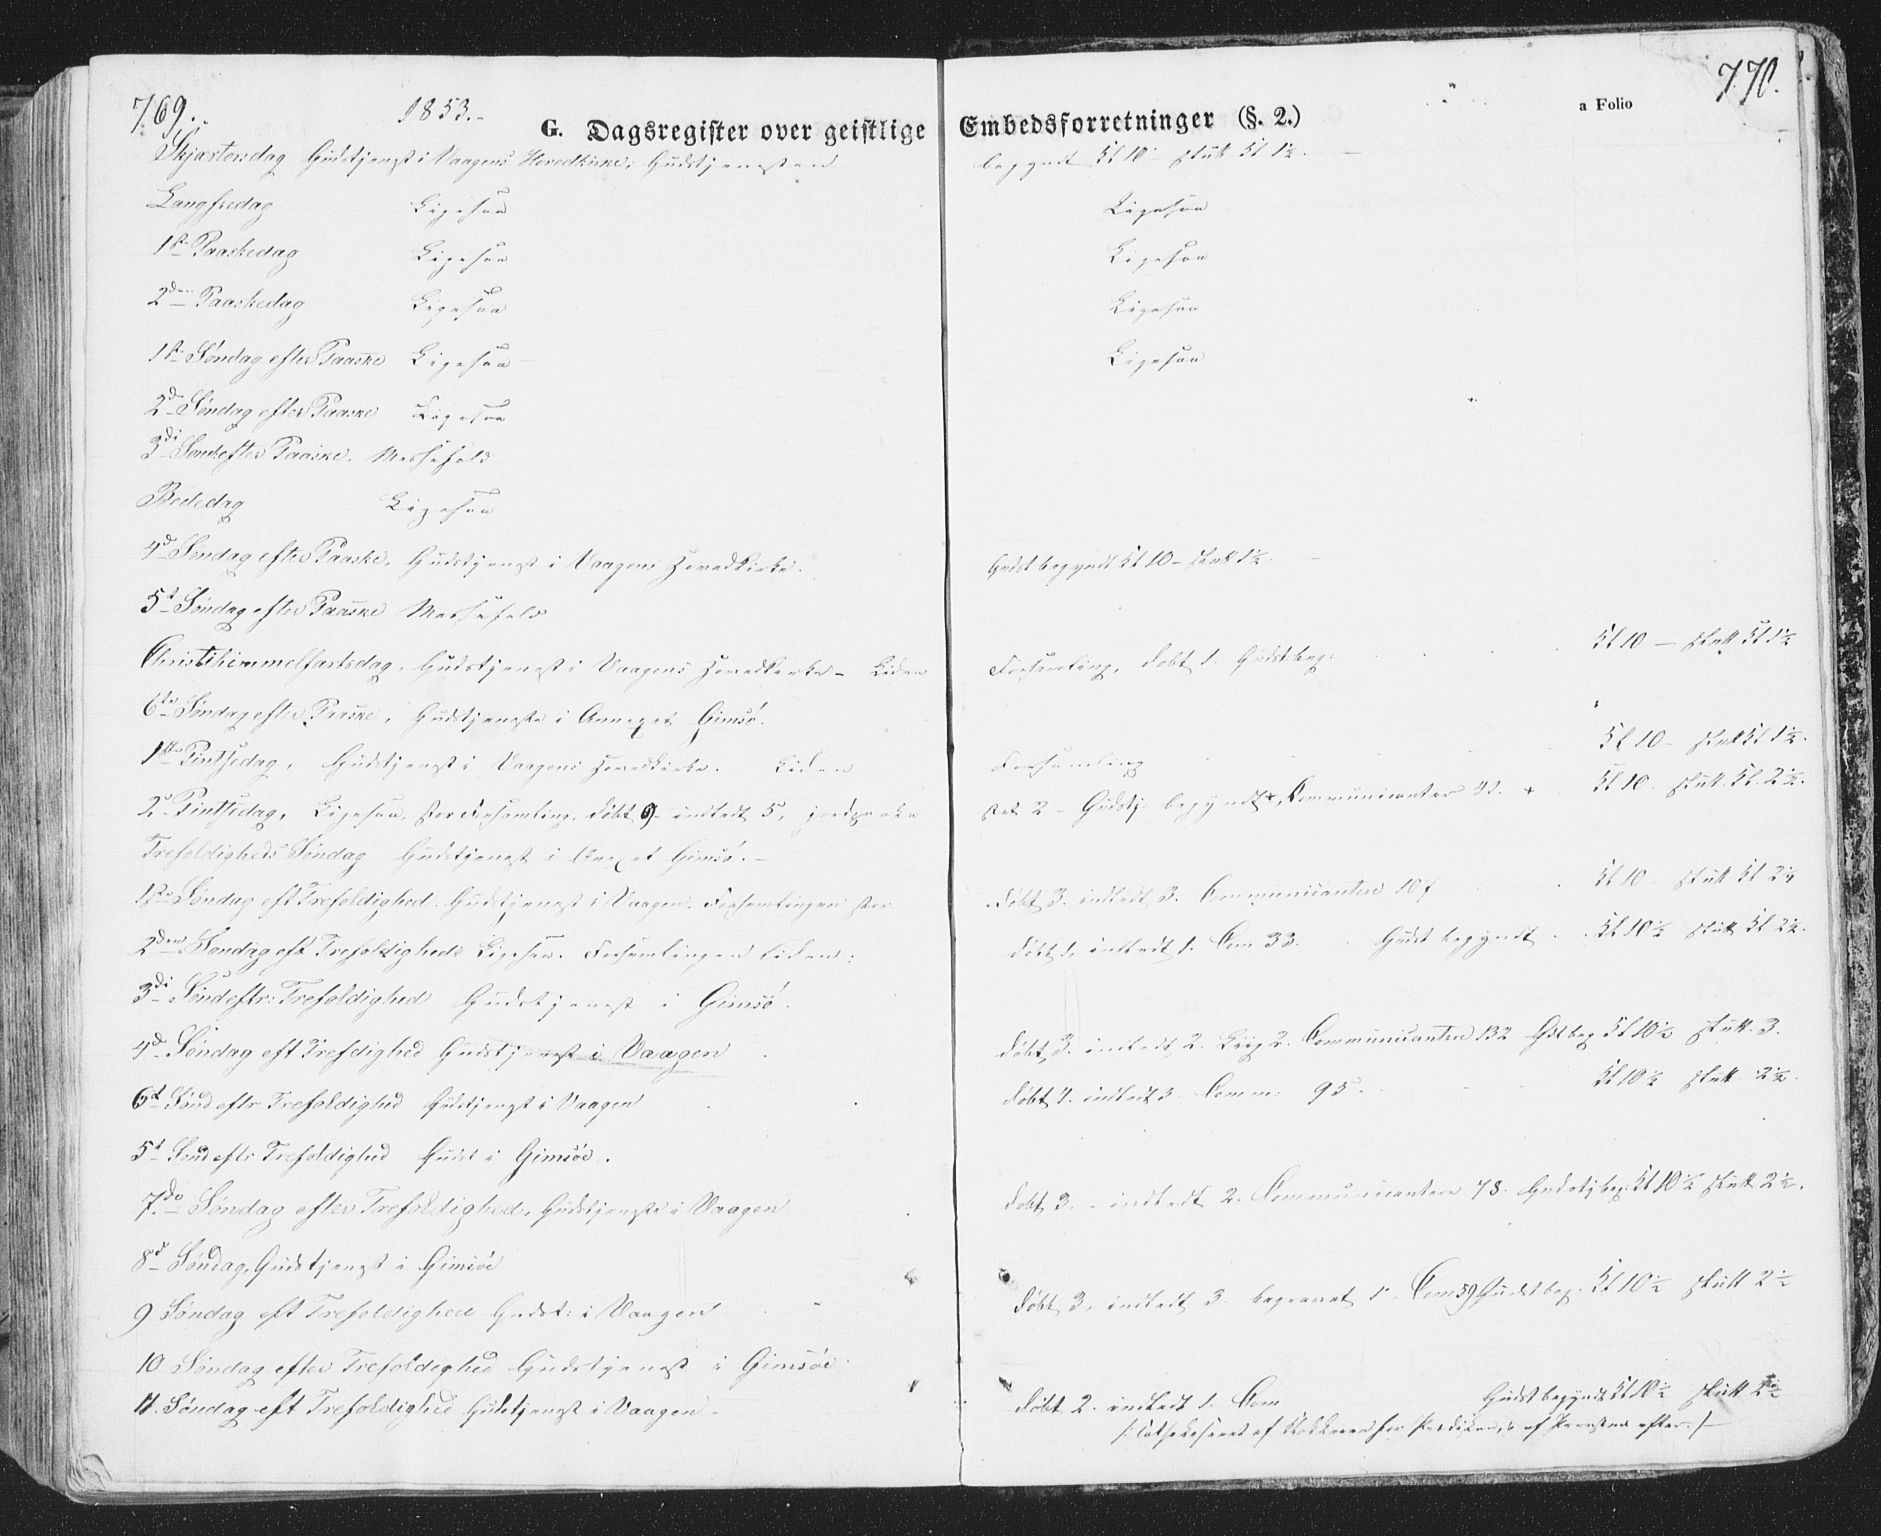 769. 1853.- G. Dagsregister over geistlige Embedsforretninger (§. 2.) a Folio 770.
Skjærtorsdag Gudstjenest i Vaagens Hovedkirke; Gudstjenesten begyndt Kl 10 - slutt Kl 1½.
Langfredag Ligesaa Ligesaa
1ste Paaskedag Ligesaa Ligesaa
2den Paaskedag Ligesaa Ligesaa
1ste Søndag efter Paaske Ligesaa Ligesaa
2d Søndag efter Paaske Ligesaa
3di Sønd efter Paaske. Messefald
Bededag Ligesaa
4d Søndag efter Paaske, Gudstjenest i Vaagens Hovedkirke. Gudst begyndt Kl 10 - slutt 1½.
5t Søndag efter Paaske Messefald
Christihimmelfartsdag. Gudstjenest i Vaagens Hovedkirke - Liden Forsamling, døbt 1. Gudst beg: Kl 10 - slutt Kl 1½
6te Søndag efter Paaske, Gudstjeneste i Annexet Gimsø.
1ste Pintsedag, Gudstjenest i Vaagens Hovedkirke. Liden Forsamling Kl 10 - slutt Kl 1½.
2d Pintsedag, Ligesaa, stor Forsamling, døbt 9 indledt 5, jordpaaka stet 2 - Gudstj: begyndt, Communicanter Kl 10. slutt Kl. 2½.
Trefoldigheds Søndag Gudstjenest i Annexet Gimsø. -
1ste Søndag eft Trefoldighed Gudstjenest i Vaagen. Forsamlingen stor døbt 3. indledt 3. Communicantere 107 Kl 10 slutt Kl 2½
2den Søndag eft Trefoldigheds Ligesaa. Forsamlingen liden. døbt 1, indledt 1. Com 33. Gudst begyndt Kl 10½ slutt Kl 2½.
3di Sønd eftr: Trefoldighed Gudstjenest i Gimsø.
4d Søndag eft Trefdighed Gudstjenest i Vaagen døbt 3. indledt 2. Communicantere 132 Gdst beg Kl 10½ slutt. 3.
6t Sønd eftr Trefoldighed Gudstjenest i Vaagen døbt 7. indledt 3 Comm: 95. Kl 10½ slutt 2½.
5t Sønd eftr Trefoldighed Gudst i Gimsöe.
7de Søndag efter Trefoldighed, Gudstjeneste i Vaagen døbt 3. - indledt 2. Communicantere 78. Gudstj beg: Kl 10½ slutt 2½.
8d Søndag, Gudstjenest i Gimsöe
9 Søndag eft Trefoldighed Gudst: i Vaagen døbt 3, indledt 3. begravet 1. Com 59 Gudst beg. Kl 10½ slutt 2½
10 Søndag efter Trefoldighed Gudstjenest i Gimsöe.
11. Søndag eft Trefoldighed Gudstjenest i Vaagen - døbt 2. indledt 1. Com Gudst begyndt Kl 10½ slutt 2½
/: af Klokkeren før Prædiken, & af Præsten efter. /